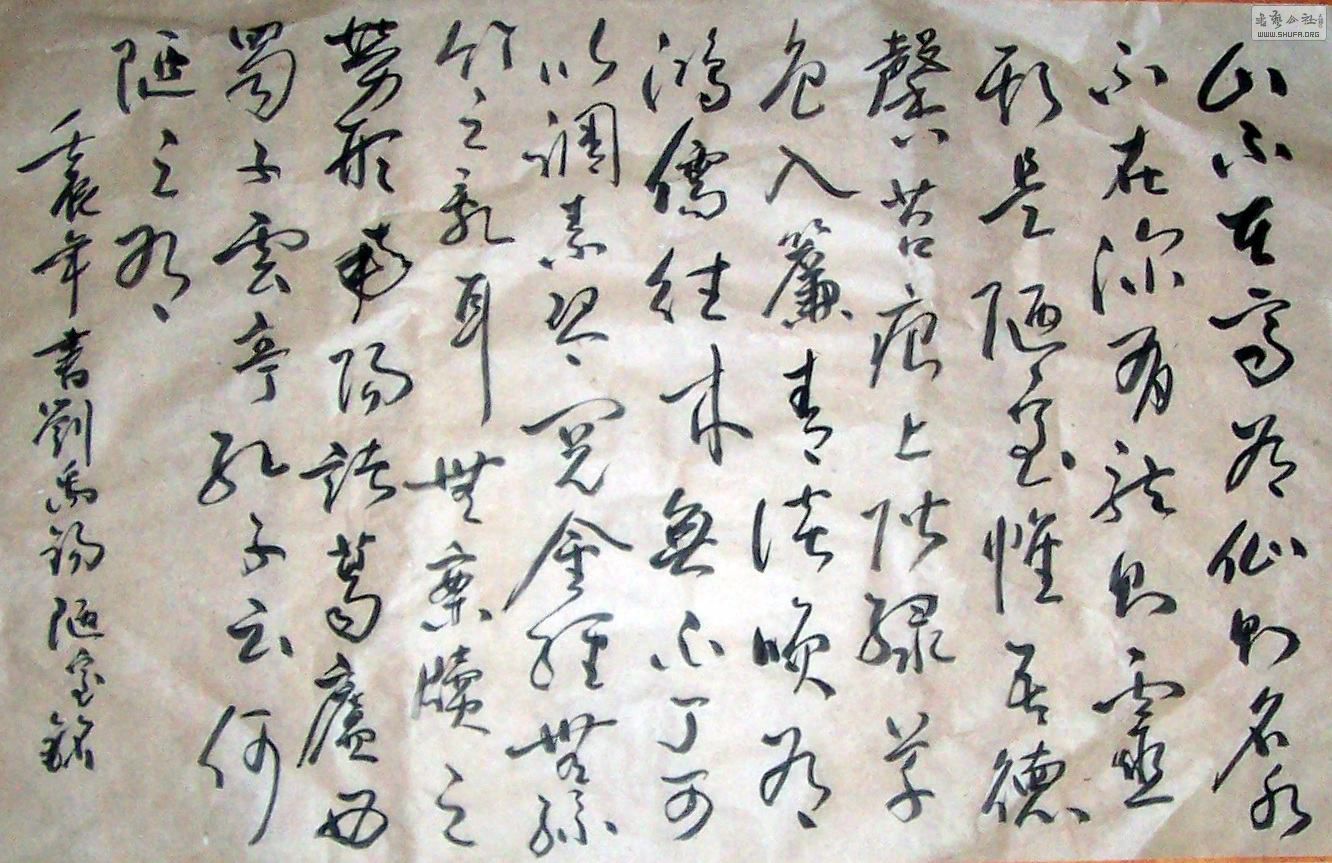 山不在高有仙則名水
不在深有龍則靈
斯是陋室惟吾德
馨苔痕上階緑草
色入簾青談笑有
鴻儒往来無白丁可
以調素琴閱金經無絲
竹之亂耳無案牘之
勞形南陽諸葛廬西
蜀子雲亭孔子云何
陋之有
壬辰年書劉禹錫陋室銘
書藝公社
WWW.SHUFA.ORG